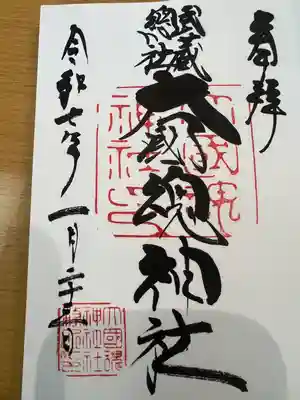 奉拝
武蔵
總社
大國魂神社
令和七年一月二十日
大國魂
神社印